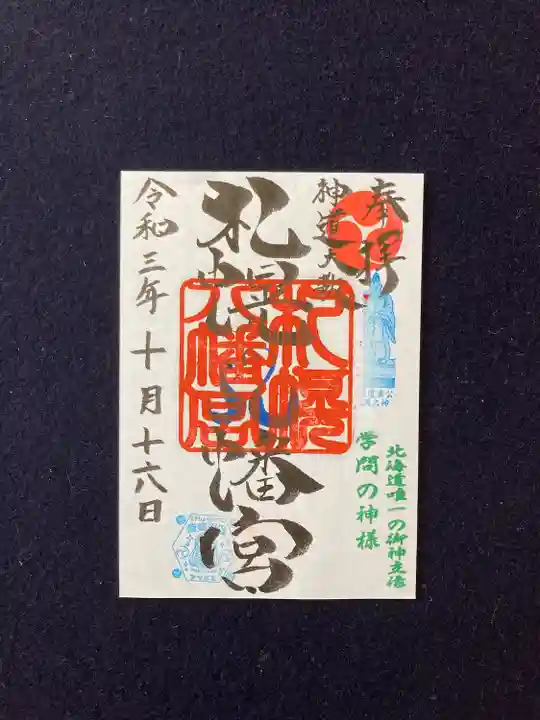 奉拝
神道大教
札幌
八幡宮
札幌
八幡宮
令和三年十月十六日
学問の神様
北海道唯一の御神立像